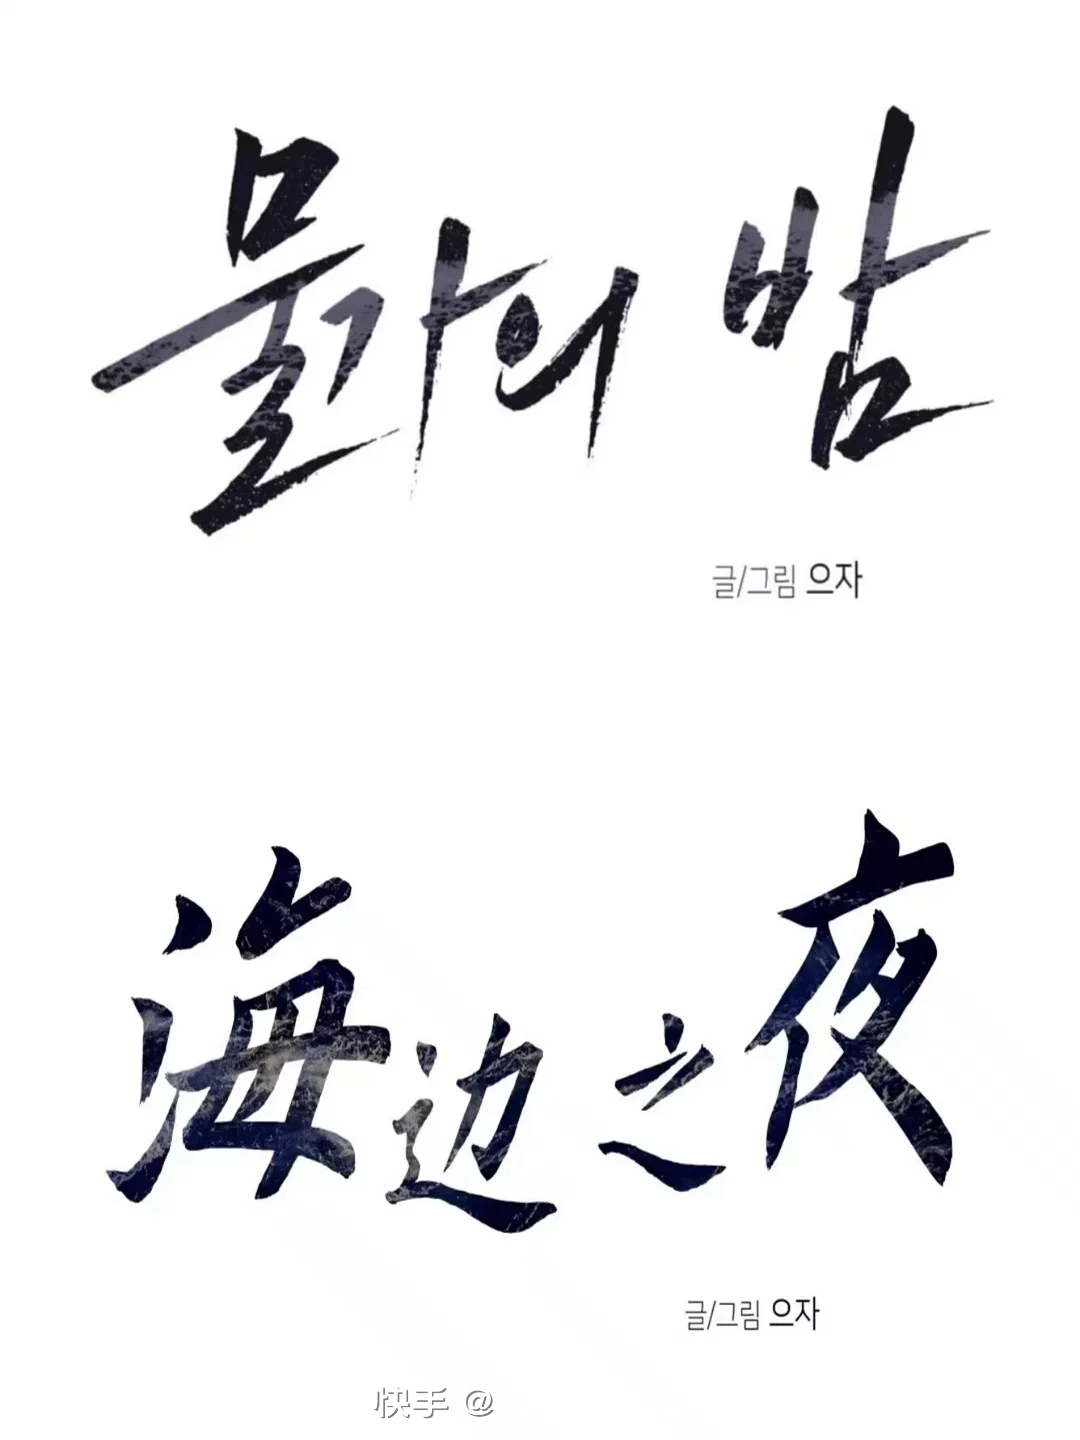 물가의 밤
글/그림 으자
海边之夜
글/그림 으자
快手 @